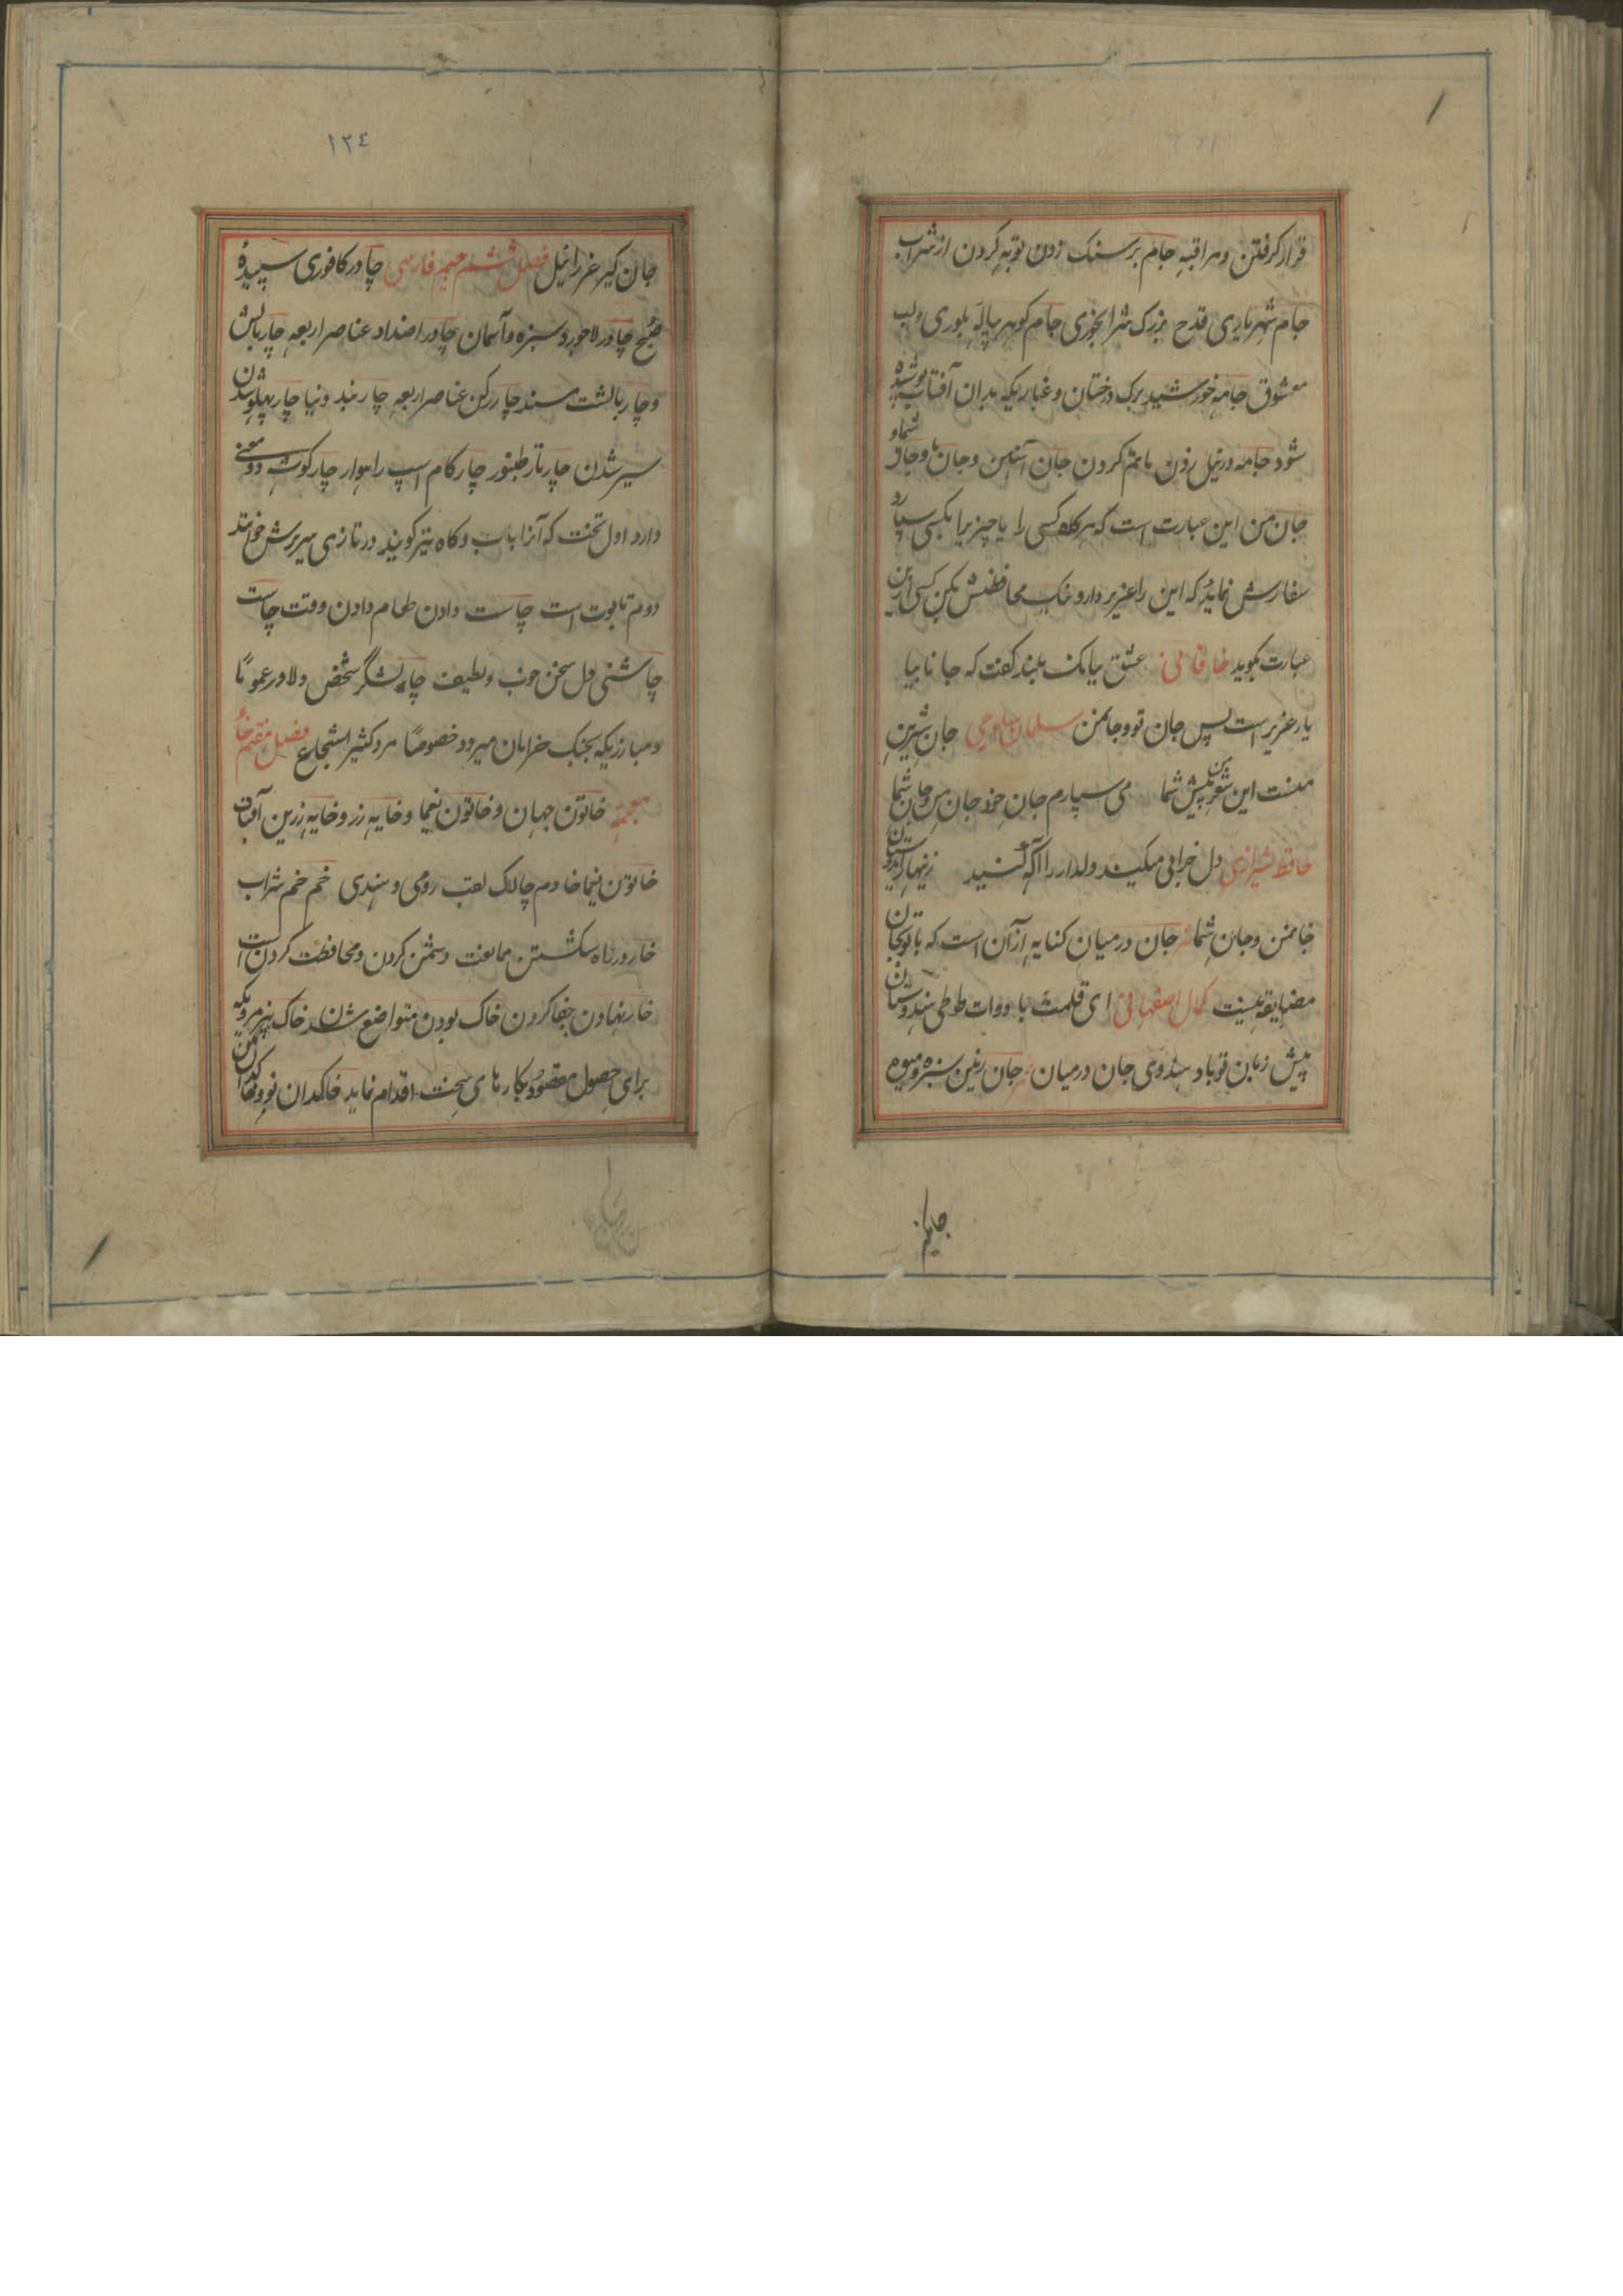 قرار کرفتن ومراقبه جام بر سنک زدن توبه کردن از شراب
جام شهریاری قدح بزرک شرابخوری جام کوهر پیاله بلوری ولب
معشوق جامه خورشید برک درختان وغباریکه بدان آفتاب پوشیده
شود جامه در نیل زدن ماتم کردن جان آهنین وجان ما وجان شما و
جان من این عبارت است که هر کاه کسی را یا چیزیرا بکسی سپارد
سفارش نماید که این را عزیز دار ونیک محافظتش بکن کسی این
عبارت بکوید خاقانی عشق ببانک بلند کفت که جانا بیا
یار عزیز است پس جان تو وجانمن سلمان ساوجی جان شیرین
منست این شعر من پیش شما می سپارم جان خود جان من وجان شما
حافظ شیرازی دل خرابی میکند دلدار را آکه کنید زینهار ای دوستان
جانمن وجان شما جان درمیان کنایه از آن است که با تو بجان
مضایقه نیست کمال اصفهانی ای قلمت با دوات طوطی هندوستان
پیش زبان تو باد هندوی جان درمیان جان رنین سبزه ومیوه
جانکیر
١٢٤
جان کیر عزرائیل فصل ششم جیم فارسی چادر کافوری سپیدهٔ
صبح چادر لاجورد سبزه وآسمان چادر اضداد عناصر اربعه چار بالش
وچار بالشت مسند چار رکن عناصر اربعه چار بند دنیا چار پهلو شدن
سیر شدن چار تار طنبور چار کام اسپ راهوار چار کوشه دو معنی
دارد اول تخت که آنرا باب وکاه نیز کویند در تازی سریرش خوانند
دوم تابوت است چاست دادن طعام دادن وقت چاست
چاشنی دل سخن خوب ولطیف چالشکر شخص دلاور عمومًا
ومبارزیکه بجنک خرامان میرود خصوصًا مرد کثیر الشجاع فصل هفتم خاٴ
معجمه خاتون جهان وخاتون یغما وخایه زر وخایه زرین آفتاب
خاتون یغما خادم چالاک لعب رومی وهندی خم خم شراب
خار در راه شکستن ممانعت دشمن کردن ومحافظت کردن است
خار نهادن جفا کردن خاک بودن متواضع شدن خاک بیز مردیکه
برای حصول مقصود بکارهای سخت اقدام نماید خاکدان نو ومحا